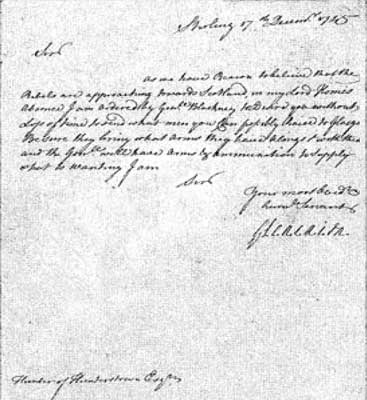 Sterling 17th Decemr. 1745
Sir
as we have Reason to believe that the
Rebels are approaching towards Scotland, in my Lord Home's
absence I am ordered by Genll. Blackney to desire you without
Loss of time to send what men you Can possibly raise to Glasgo
Be sure they bring what arms they have alongst with them
and the Genll. will have Arms & ammunition to supply
what is wanting I am
Sir
Your most obedt.
humble Servant
of Hunderstown Esqr.